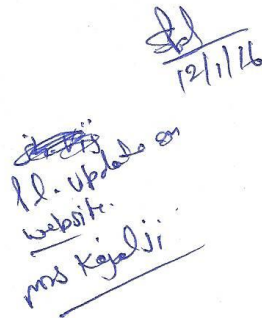 12/1/16
Pl. update on
website.
Mrs Kajalji